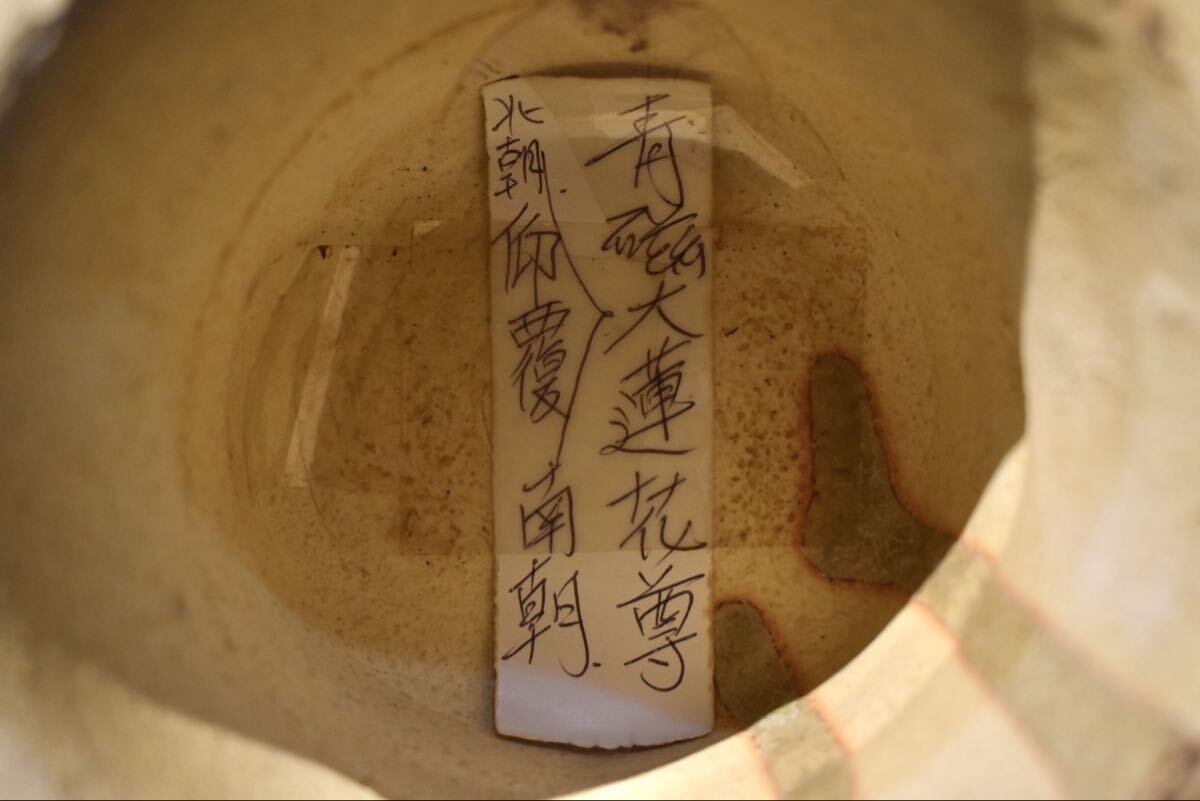 青磁大蓮花尊
北朝.仰覆南朝.